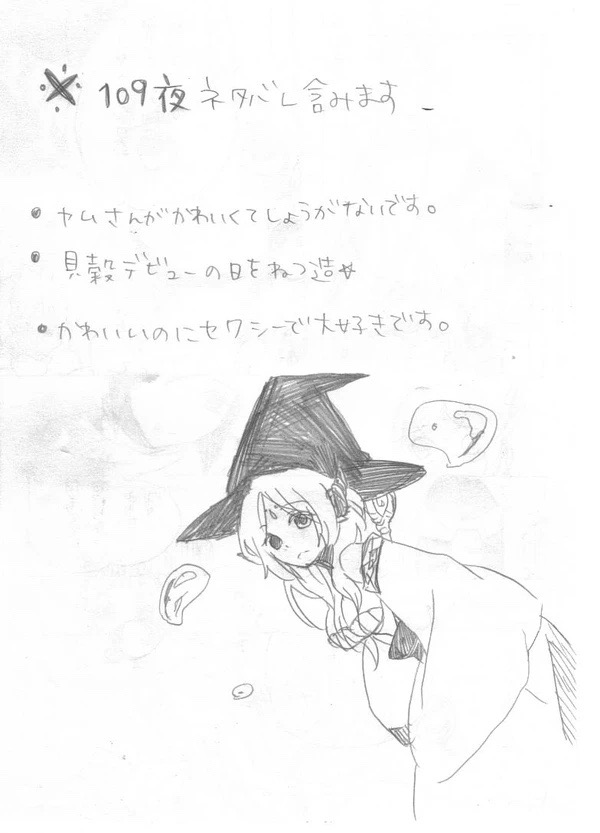 ※ 109夜ネタバレ含みます
• ヤムさんがかわいくてしょうがないです。
• 貝殻デビューの日をねつ造
• かわいいのにセクシーで大好きです。